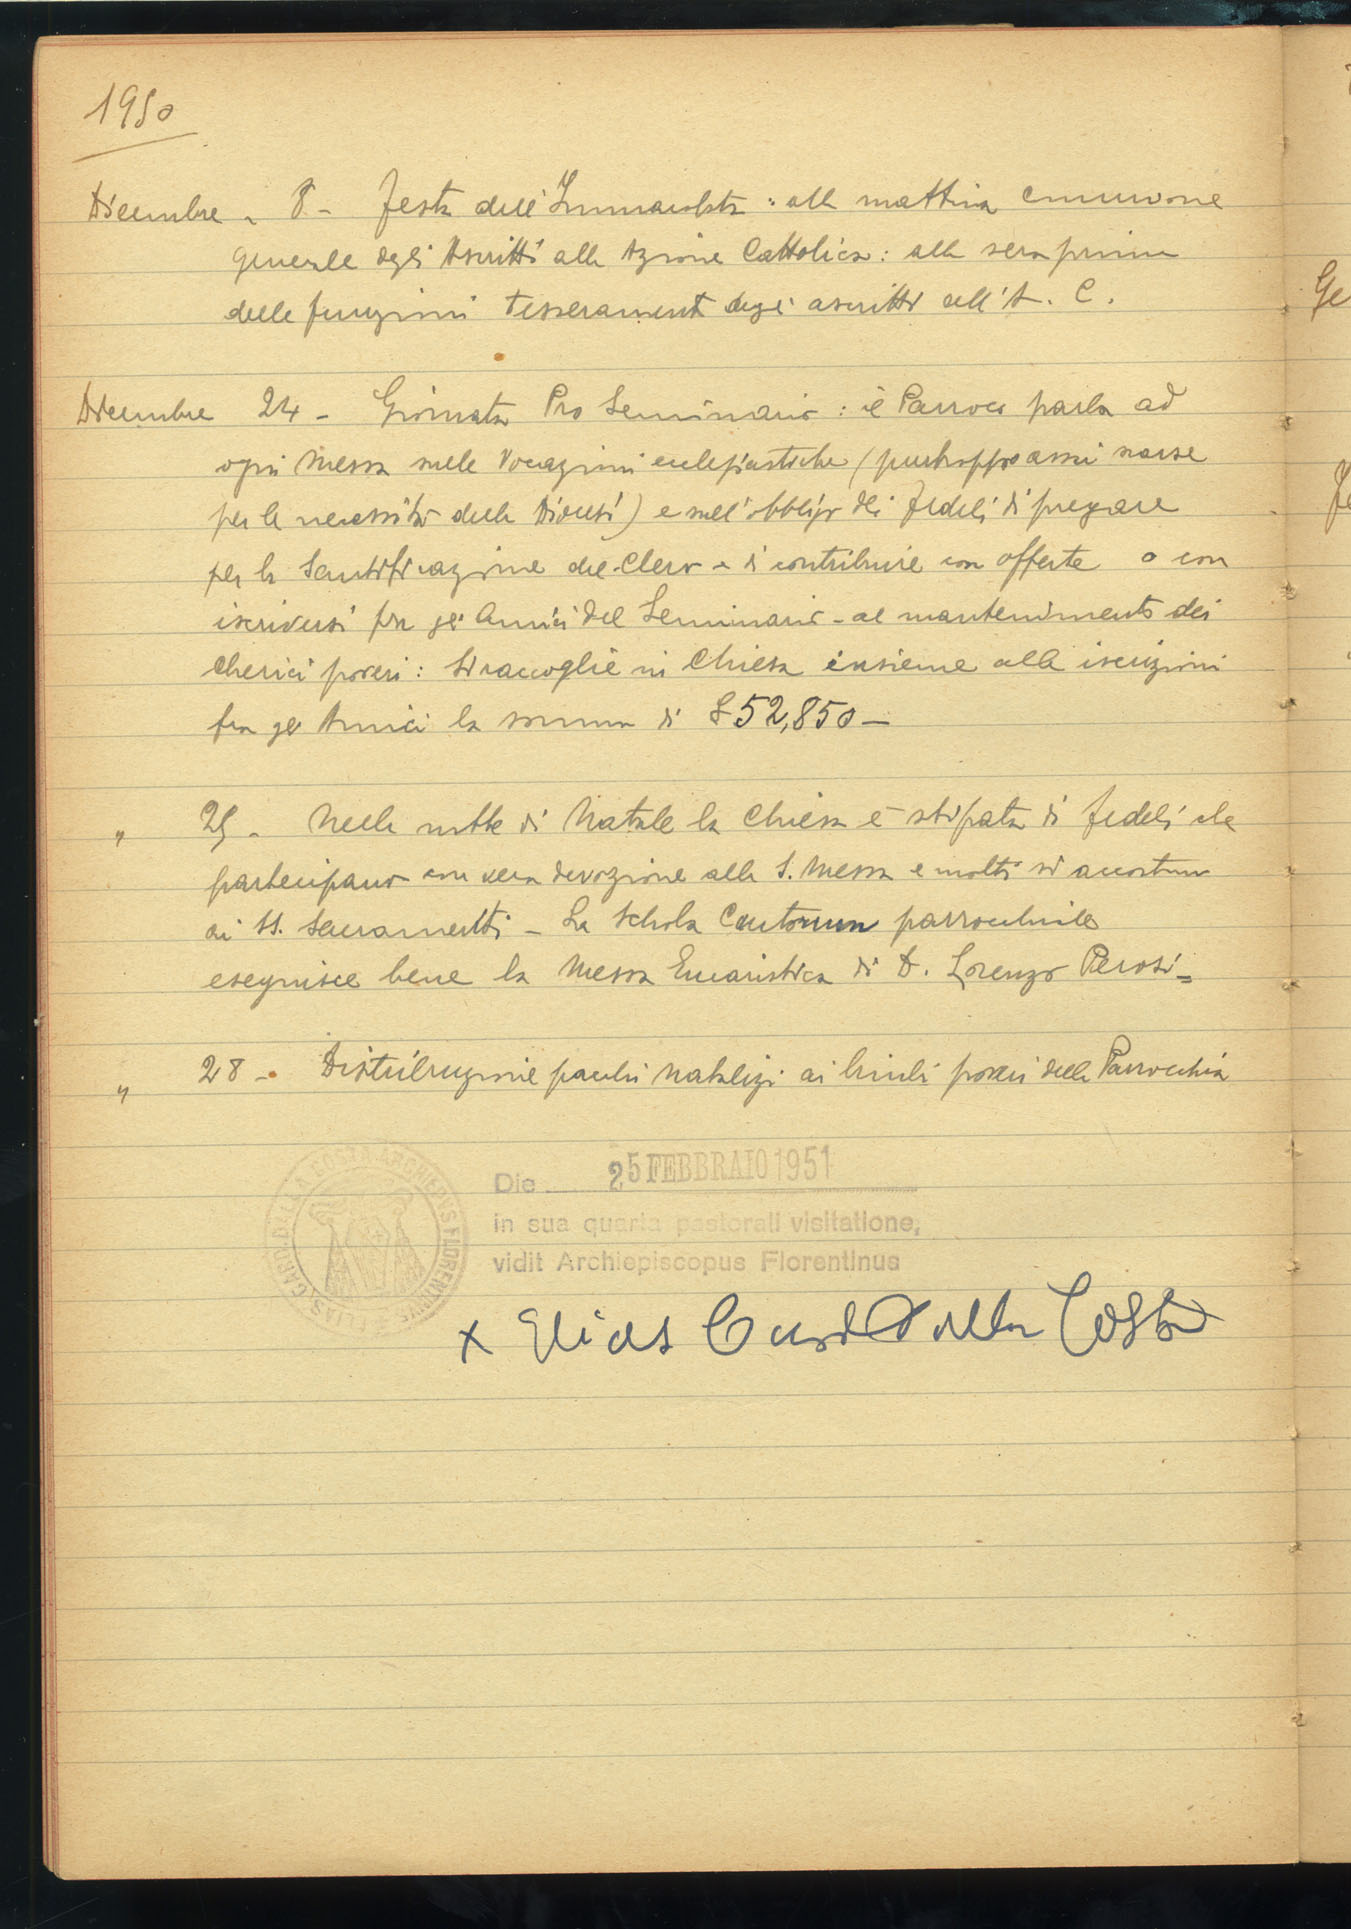 1950
Dicembre - 8 - Festa dell'Immacolata: alla mattina comunione
generale degli Ascritti alla Azione Cattolica: alla sera prima
delle funzioni tesseramento degli ascritti all'A. C.
Dicembre 24 - Giornata Pro Seminario: il Parroco parla ad
ogni Messa sulle Vocazioni ecclesiastiche (purtroppo assai scarse
per le necessità della Diocesi) e sull'obbligo dei fedeli di pregare
per la Santificazione del Clero e di contribuire con offerte o con
iscriversi fra gli Amici del Seminario - al mantenimento dei
Cherici poveri: si raccoglie in Chiesa insieme alle iscrizioni
fra gli Amici la somma di £ 52,850 -
" 25 - Nella notte di Natale la Chiesa è stipata di fedeli che
partecipano con vera devozione alla S. Messa e molti si accostano
ai SS. Sacramenti - La Schola Cantorum parrocchiale
eseguisce bene la Messa Eucaristica di D. Lorenzo Perosi =
" 28 - Distribuzione pacchi natalizi ai bimbi poveri della Parrocchia
ELIAS CARD. DELLA COSTA ARCHIEPUS FLORENTINUS
Die 25 FEBBRAIO 1951
in sua quarta pastorali visitatione,
vidit Archiepiscopus Florentinus
x Elias Card Dalla Costa
Ge